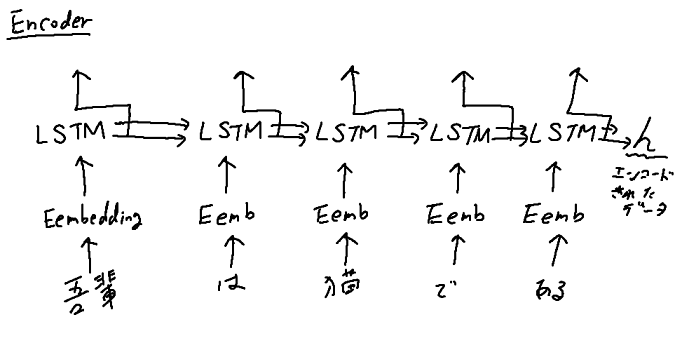 Encoder
LSTM LSTM LSTM LSTM LSTM h
エンコード
された
データ
Eembedding Eemb Eemb Eemb Eemb
吾輩 は 猫 で ある